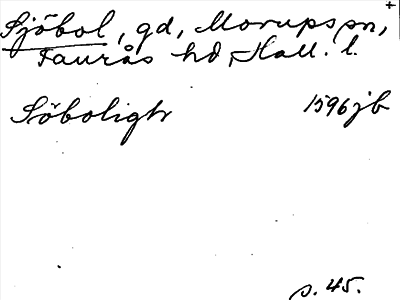 Sjöbol, gd, Morups sn,
Faurås hd, Hall. l.
Söboligh 1596 jb
s. 45.